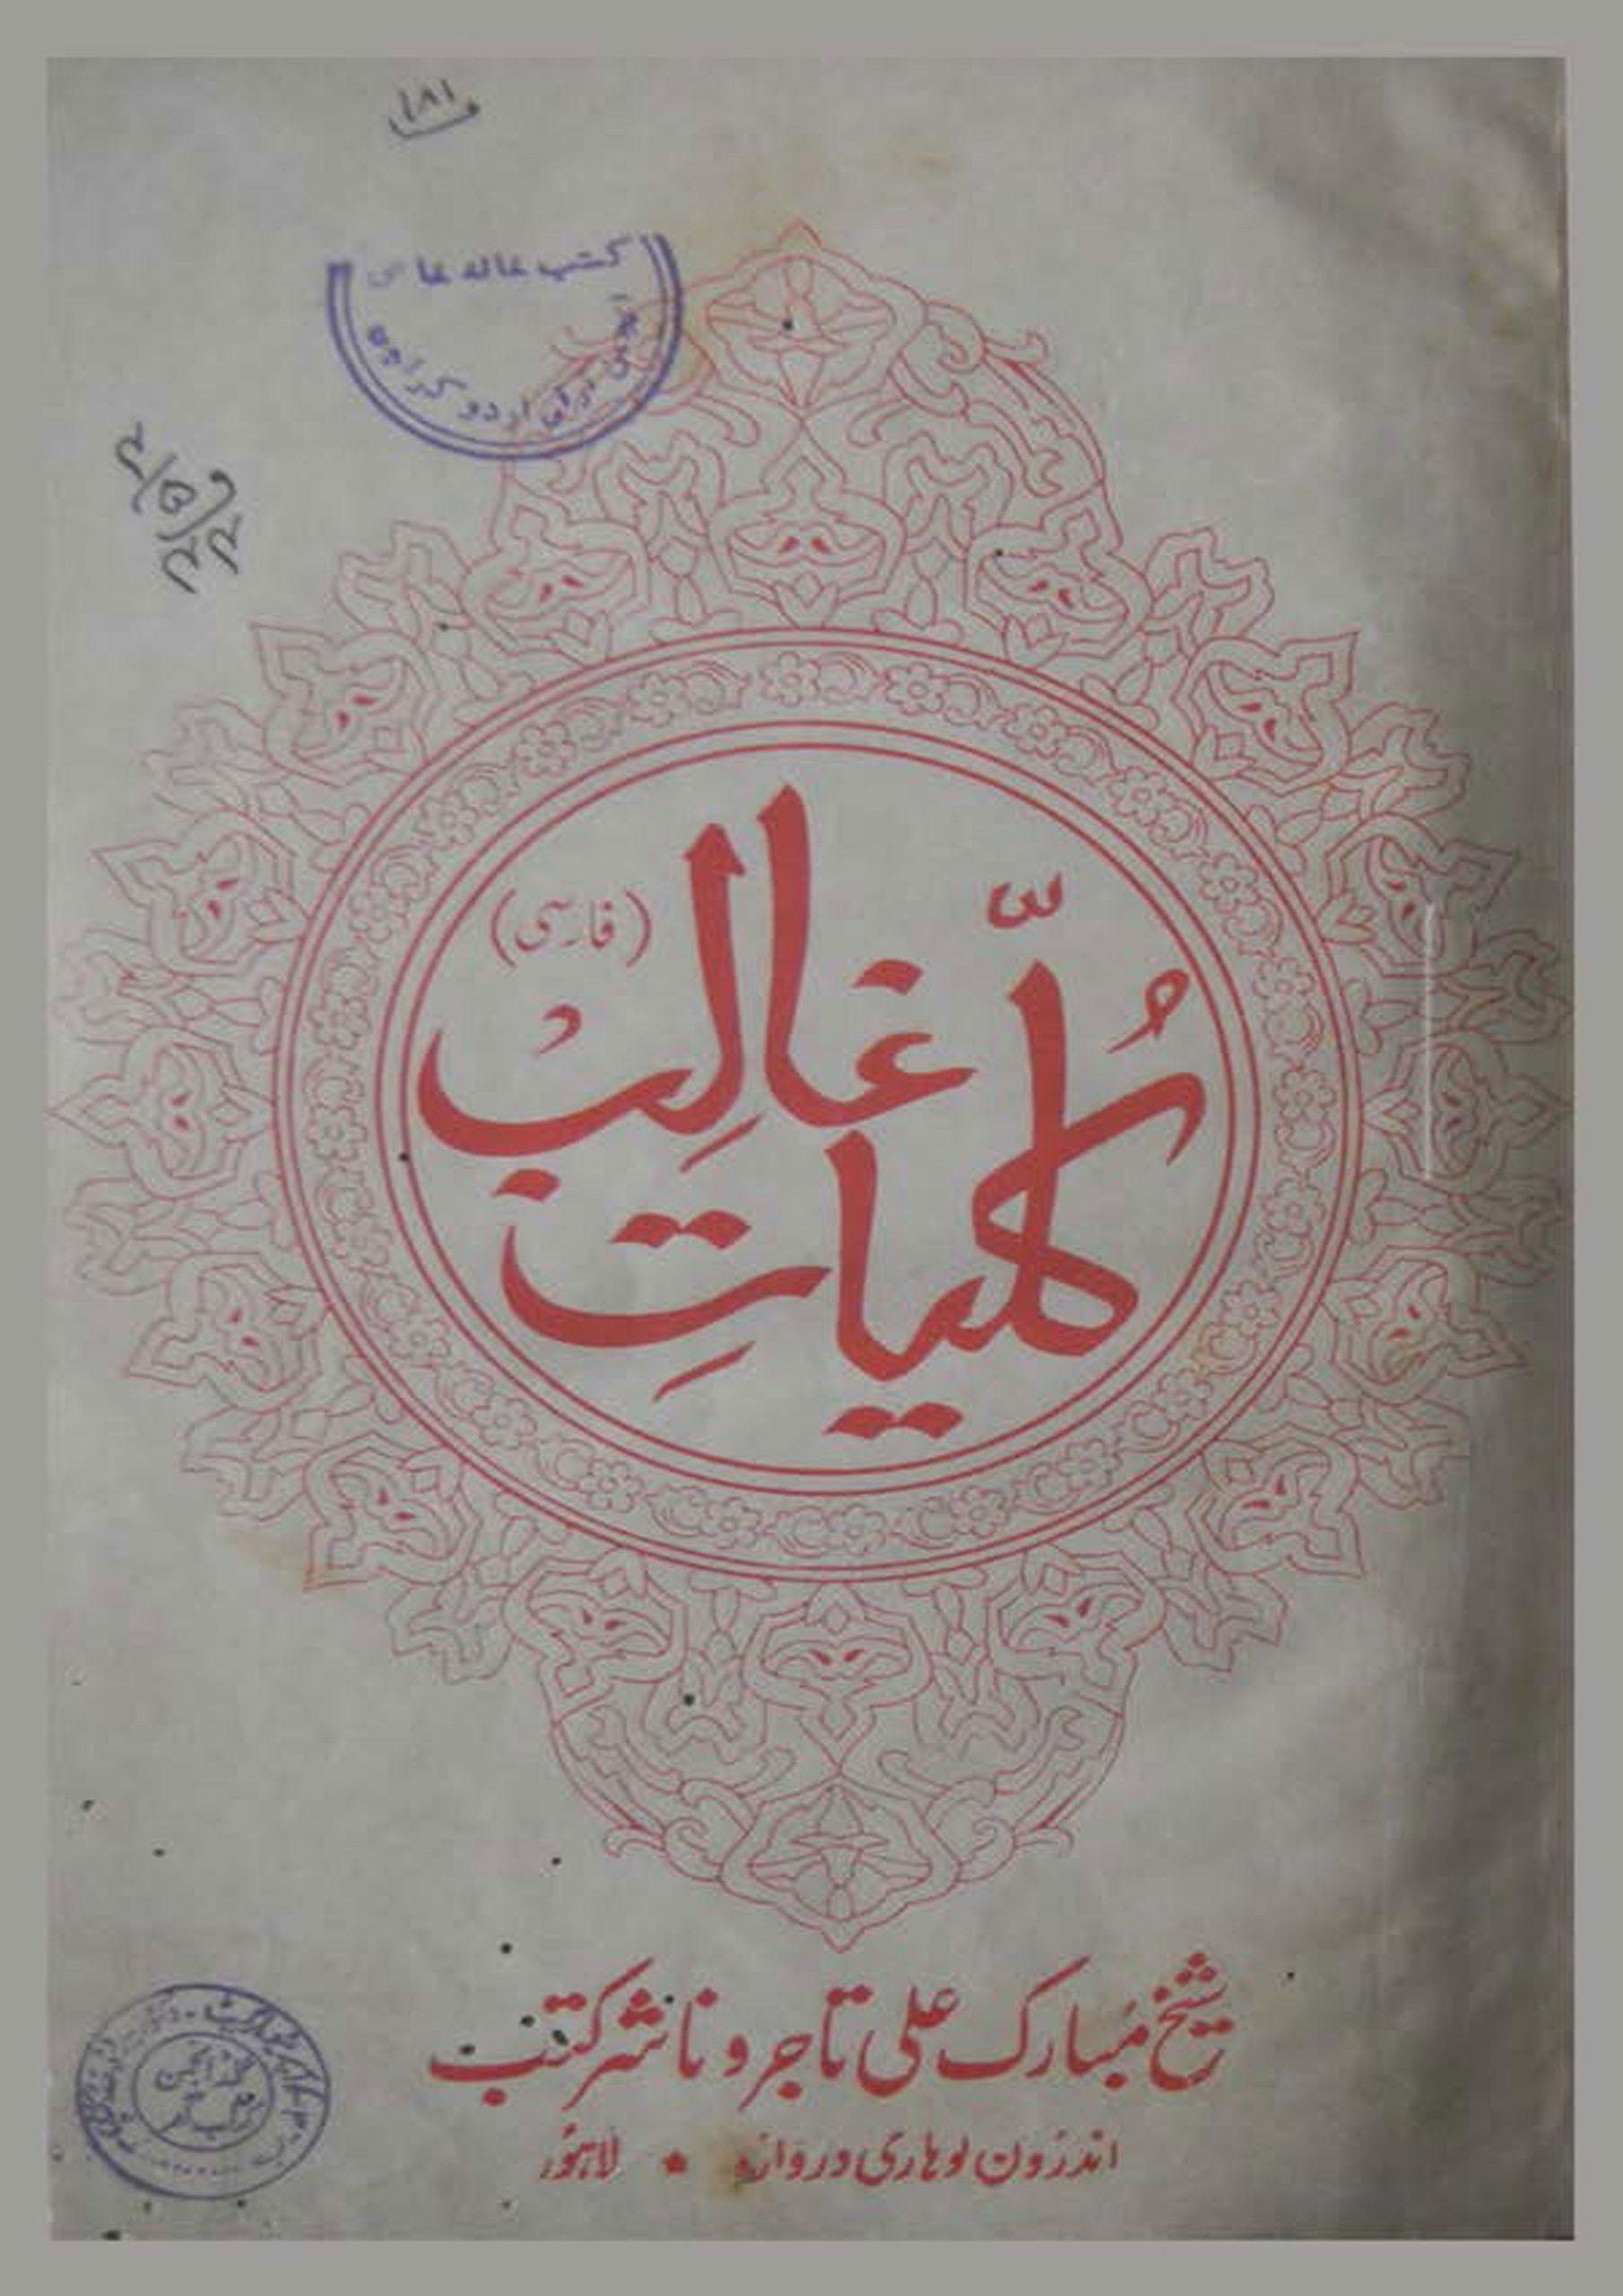 ۱۸۱
کتب خانہ خاص
انجمن ترقی اردو کراچی
کُلّیاتِ غالِبْ
(فارسی)
شیخ مُبارک علی تاجر و ناشر کتب
اندرون لوہاری دروازہ * لاہور